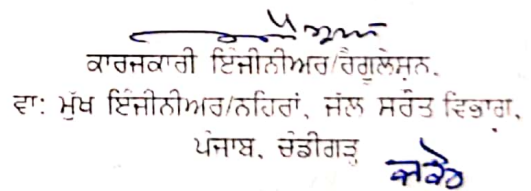 ਕਾਰਜਕਾਰੀ ਇੰਜੀਨੀਅਰ/ਰੈਗੂਲੇਸ਼ਨ,
ਵਾ: ਮੁੱਖ ਇੰਜੀਨੀਅਰ/ਨਹਿਰਾਂ, ਜਲ ਸਰੋਤ ਵਿਭਾਗ,
ਪੰਜਾਬ, ਚੰਡੀਗੜ੍ਹ